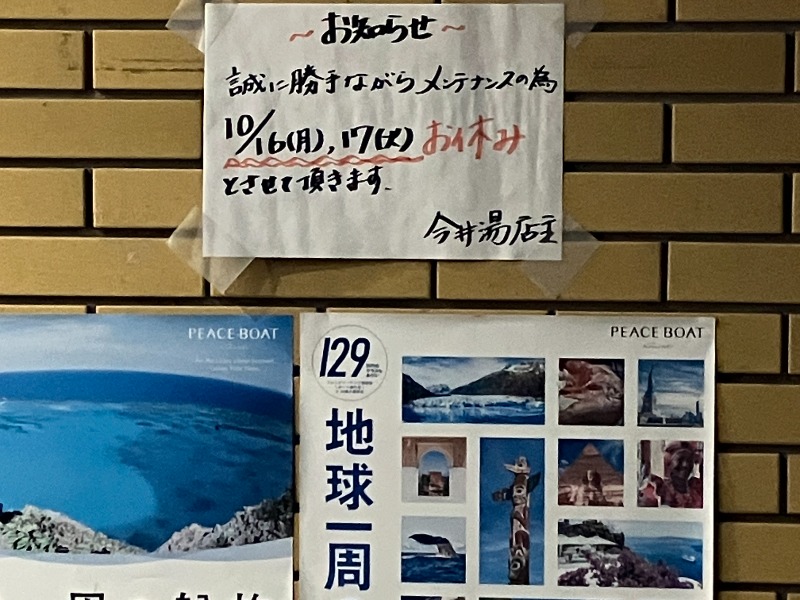 ～お知らせ～
誠に勝手ながらメンテナンスの為
10/16(月),17(火)お休み
とさせて頂きます.
今井湯店主
PEACE BOAT
PEACE BOAT
129
地球一周